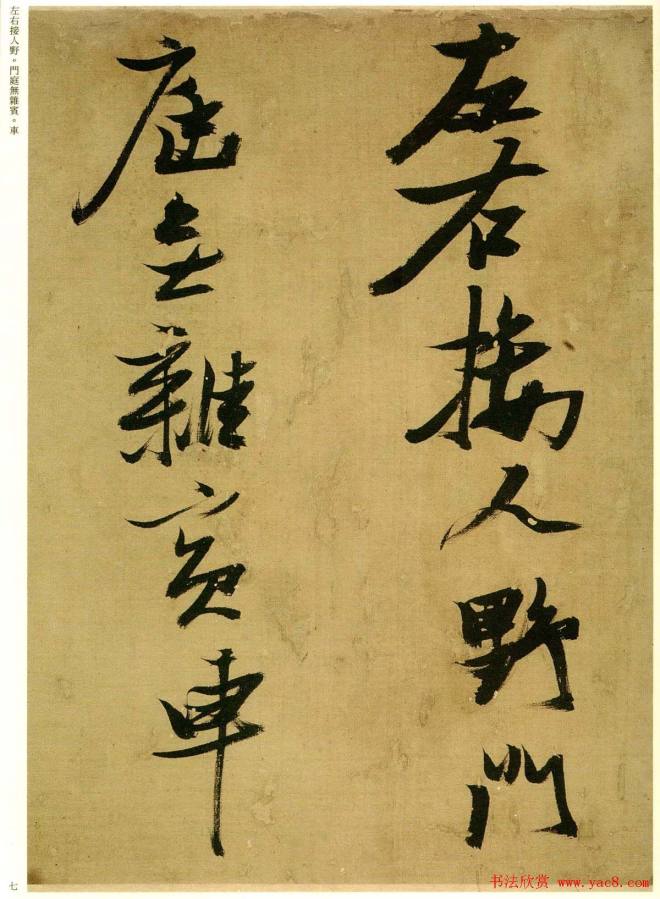 左右接人野門
庭無雜賓車
左右接人野。門庭無雜賓。車
七
书法欣赏 www.yac8.com